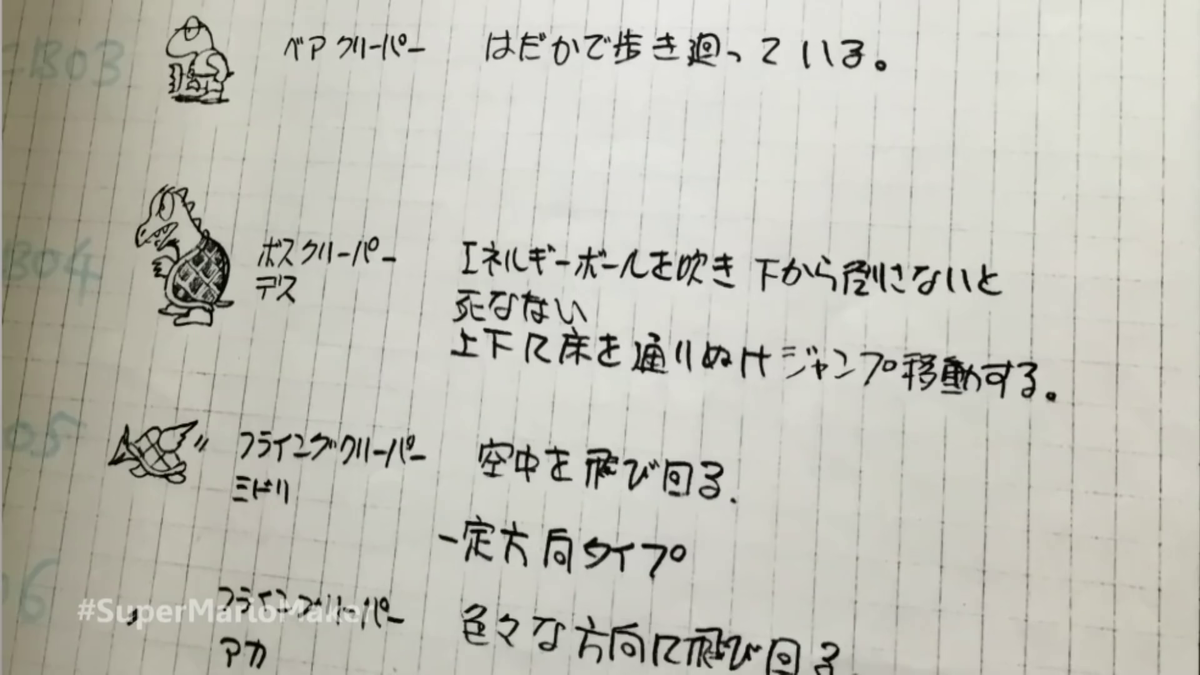 B03
ベアクリーパー はだかで歩き廻っている。
B04
ボスクリーパー エネルギーボールを吹き 下から倒さないと
デス 死なない
上下に床を通りぬけジャンプ移動する。
05
フライングクリーパー 空中を飛び回る.
ミドリ
一定方向タイプ
06
#SuperMarioMaker
フライングクリーパー 色々な方向に飛び回る.
アカ